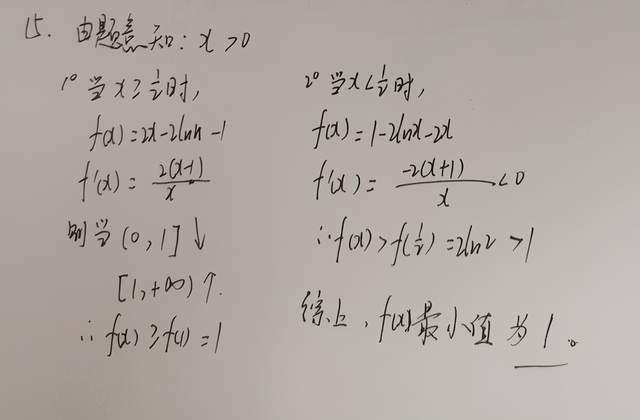 15. 由题意知: x>0
1° 当x≥1/2时,
f(x)=2x-2lnx-1
f'(x)=2(x-1)/x
则当(0,1]↓
[1,+∞)↑.
∴f(x)≥f(1)=1
2° 当x<1/2时,
f(x)=1-2lnx-2x
f'(x)=-2(x+1)/x<0
∴f(x)>f(1/2)=2ln2>1
综上,f(x)最小值为1。